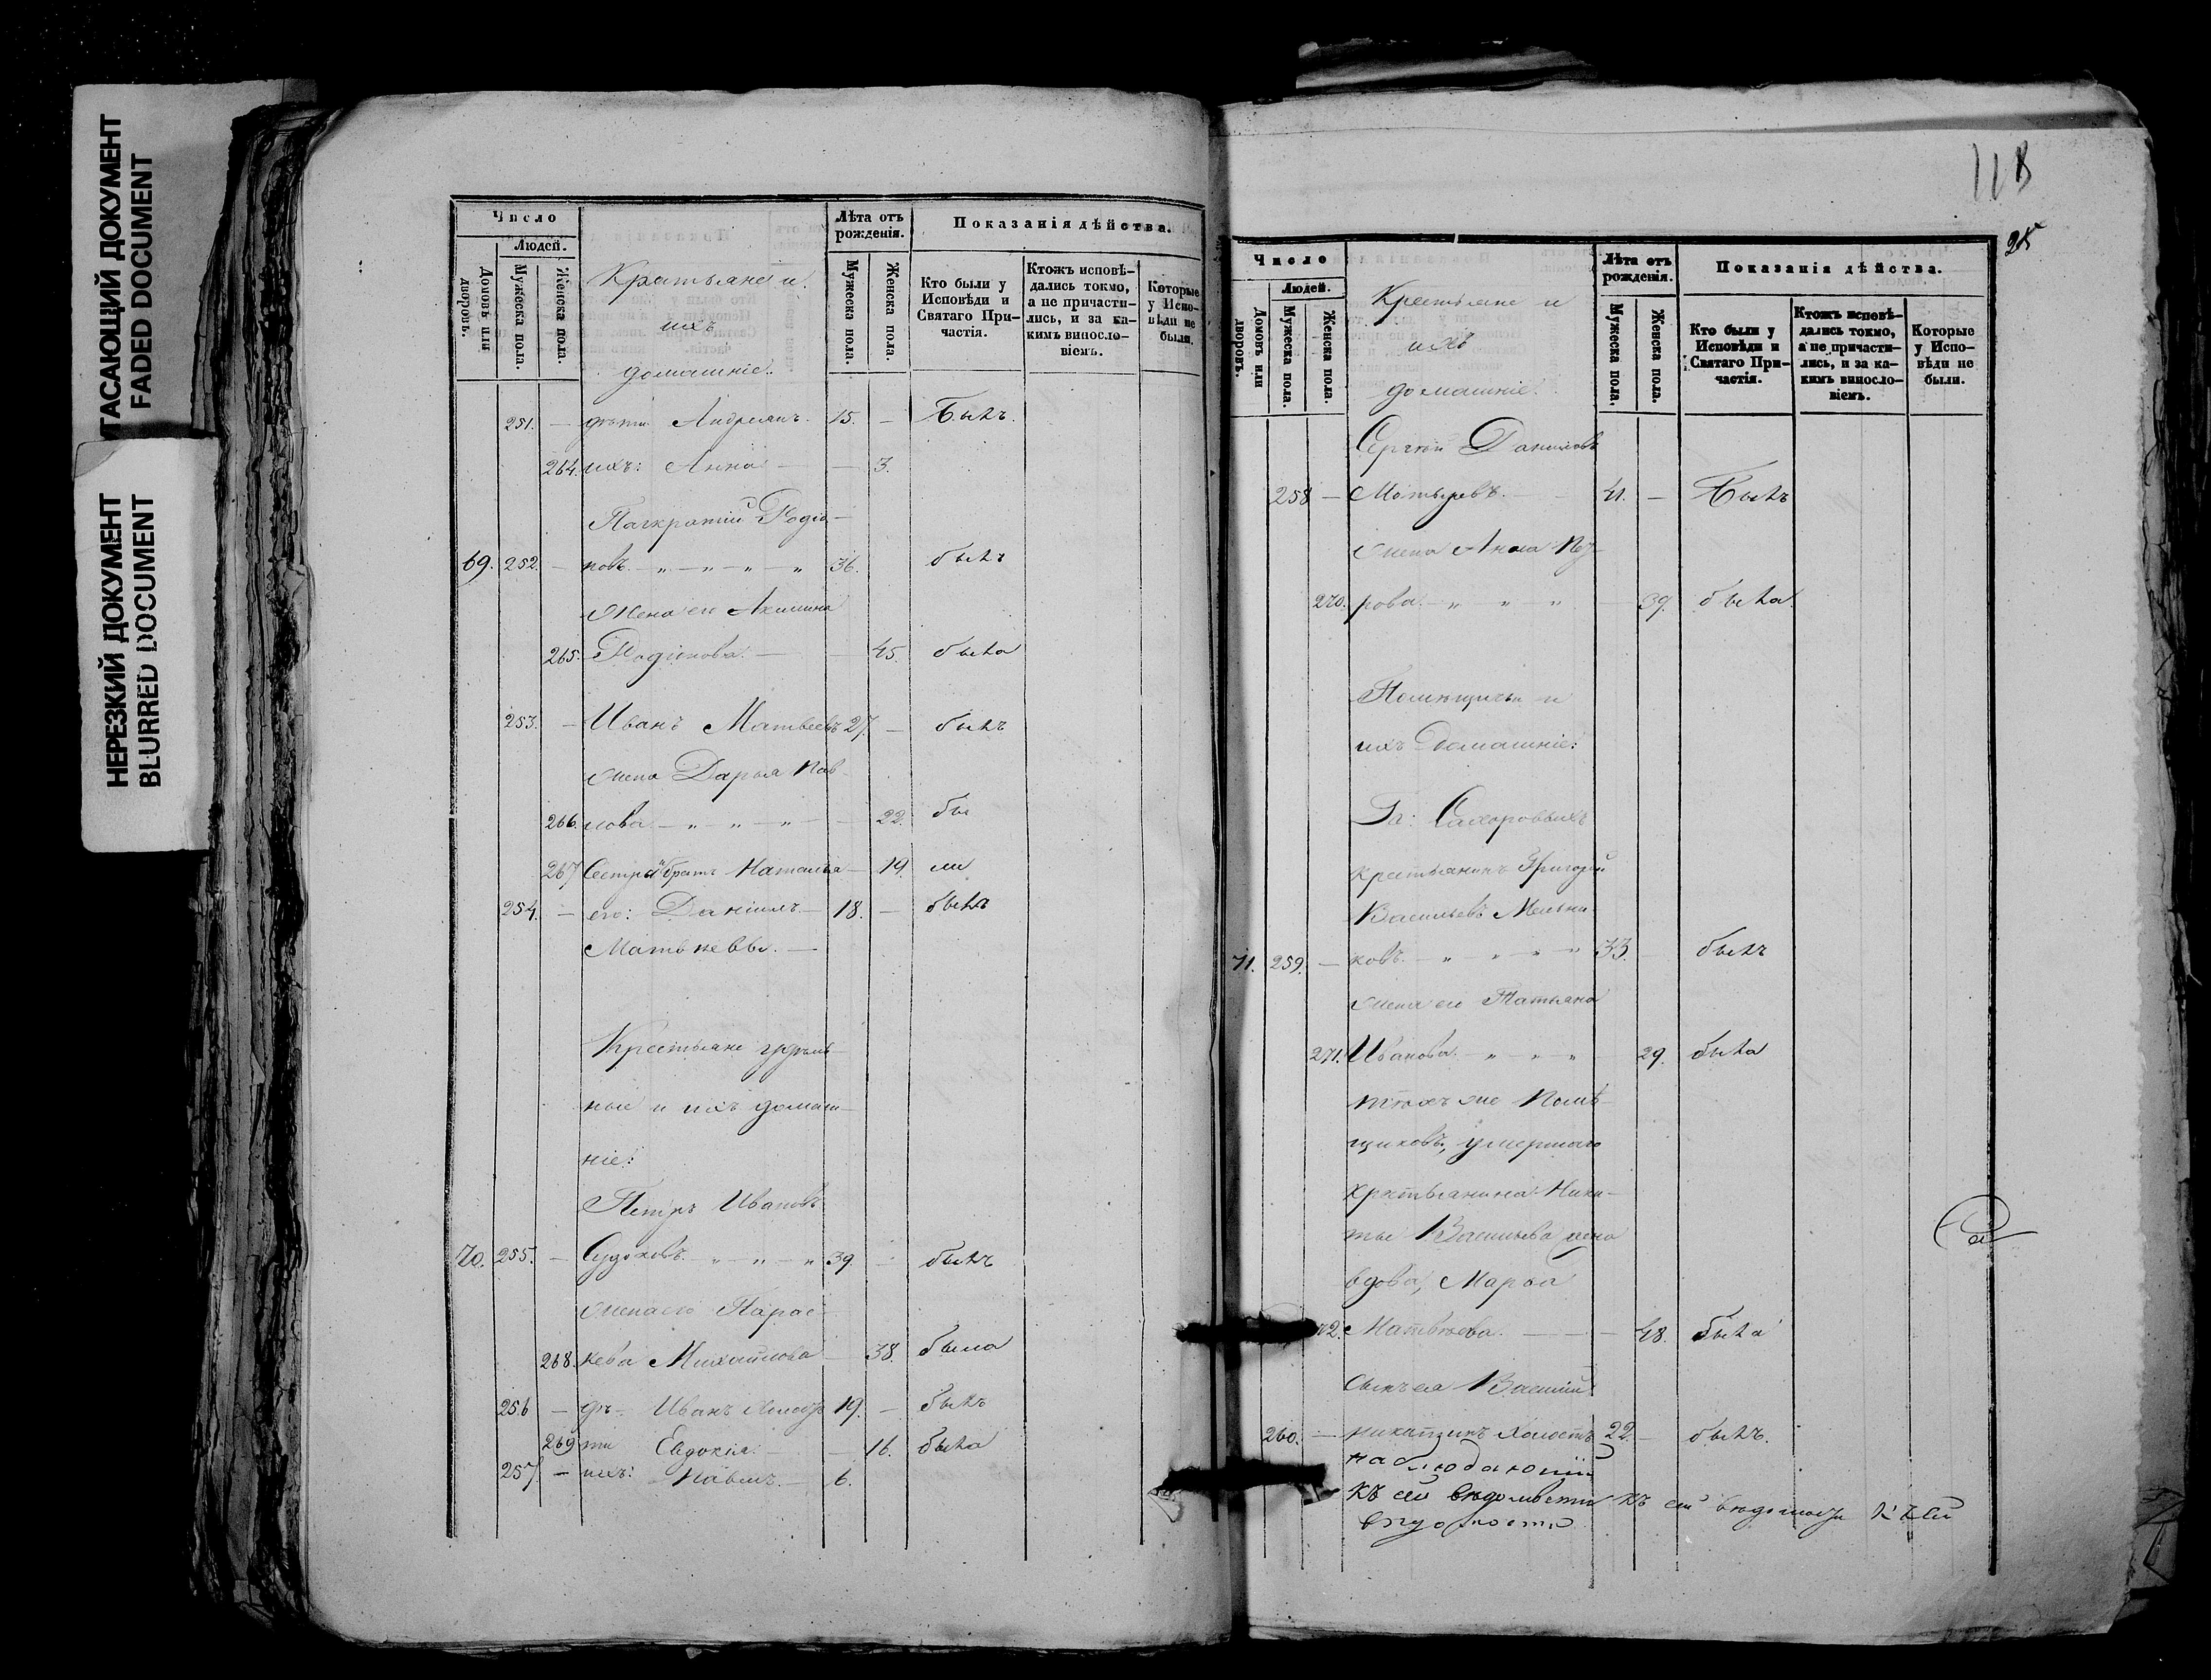 УГАСАЮЩИЙ ДОКУМЕНТ
FADED DOCUMENT
НЕРЕЗКИЙ ДОКУМЕНТ
BLURRED DOCUMENT
Число
Людей.
Домовъ или дворовъ.
Мужеска пола.
Женска пола.
Крестьяне и
ихъ
домашніе.
Лѣта отъ рожденія.
Мужеска пола.
Женска пола.
Показанія дѣйства.
Кто были у Исповѣди и Святаго Причастія.
Ктожъ исповѣ-
дались токмо,
а не причасти-
лись, и за ка-
кимъ винosло-
віемъ.
Которые
у Испо-
вѣди не
были.
251. — дѣти Андреянъ. 15. — Былъ.
264. ихъ: Анна — — 3.
Панкратій Родіо-
69. 252. — новъ — „ — „ — „ — „ 36. былъ
Жена его Акилина
265. Родіонова. — — 45. была
253. — Иванъ Матвеевъ 27. — былъ
жена Дарья Пав-
266. лова — „ — „ — „ — — 22. бы
267 Сестра и братъ Наталья — 19. ли
254. — его: Даніилъ — 18. — была
Матвѣевы. —
Крестьяне удѣль-
ные и ихъ домаш-
ніе:
Петръ Ивановъ
70. 255. — Судоковъ. „ — „ — „ 39. — былъ
жена его Парас-
268. кева Михайлова — 38. была
256 — дѣ- Иванъ 19. — былъ
269 ти Евдокія. — — 16. была
257. — ихъ: Павелъ. — 6.
118
25
Число
Людей.
Домовъ или дворовъ.
Мужеска пола.
Женска пола.
Крестьяне и
ихъ
домашніе.
Лѣта отъ рожденія.
Мужеска пола.
Женска пола.
Показанія дѣйства.
Кто были у
Исповѣди и
Святаго При-
частія.
Ктожъ исповѣ-
дались токмо,
а не причасти-
лись, и за ка-
кимъ винosло-
віемъ.
Которые
у Испо-
вѣди не
были.
Сергѣй Даниловъ
258 — Мотыревъ. — 41. — Былъ
жена Анна Пет-
270. рова. — „ „ „ — 39. была.
Помѣщичьи и
ихъ домашніе:
Гг: Сахоровыхъ
крестьянинъ Григорій
Васильевъ Мельни-
71. 259. — ковъ. — „ „ „ — „ 33. — былъ
жена его Татьяна
271. Иванова. — „ — „ — „ 29. была
тѣхъ же Помѣ-
щиковъ, умершаго
крестьянина Ники-
ты Васильева жена
вдова, Марья
72. Матвѣева. — — — 48. была
сынъ ея Василій
260. — Никитинъ холостъ 22. — былъ.
наблюдающій
къ сей вѣдомости къ сей къ сей